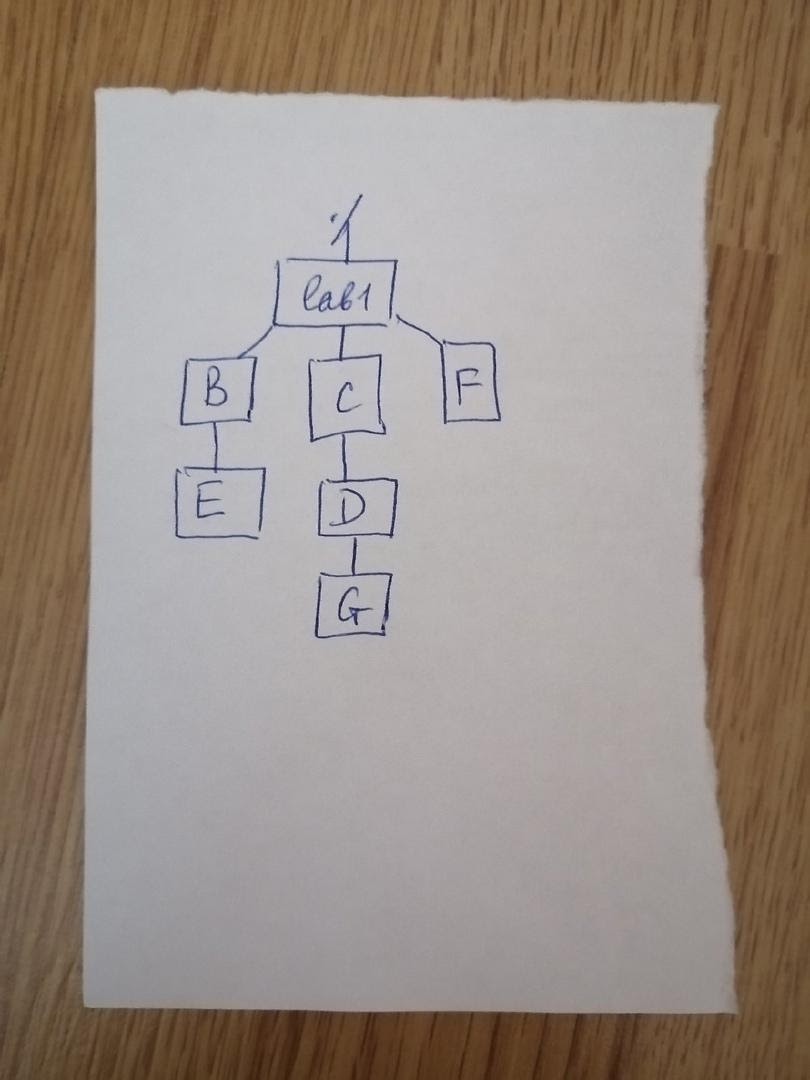 lab1
B C F
E D
G